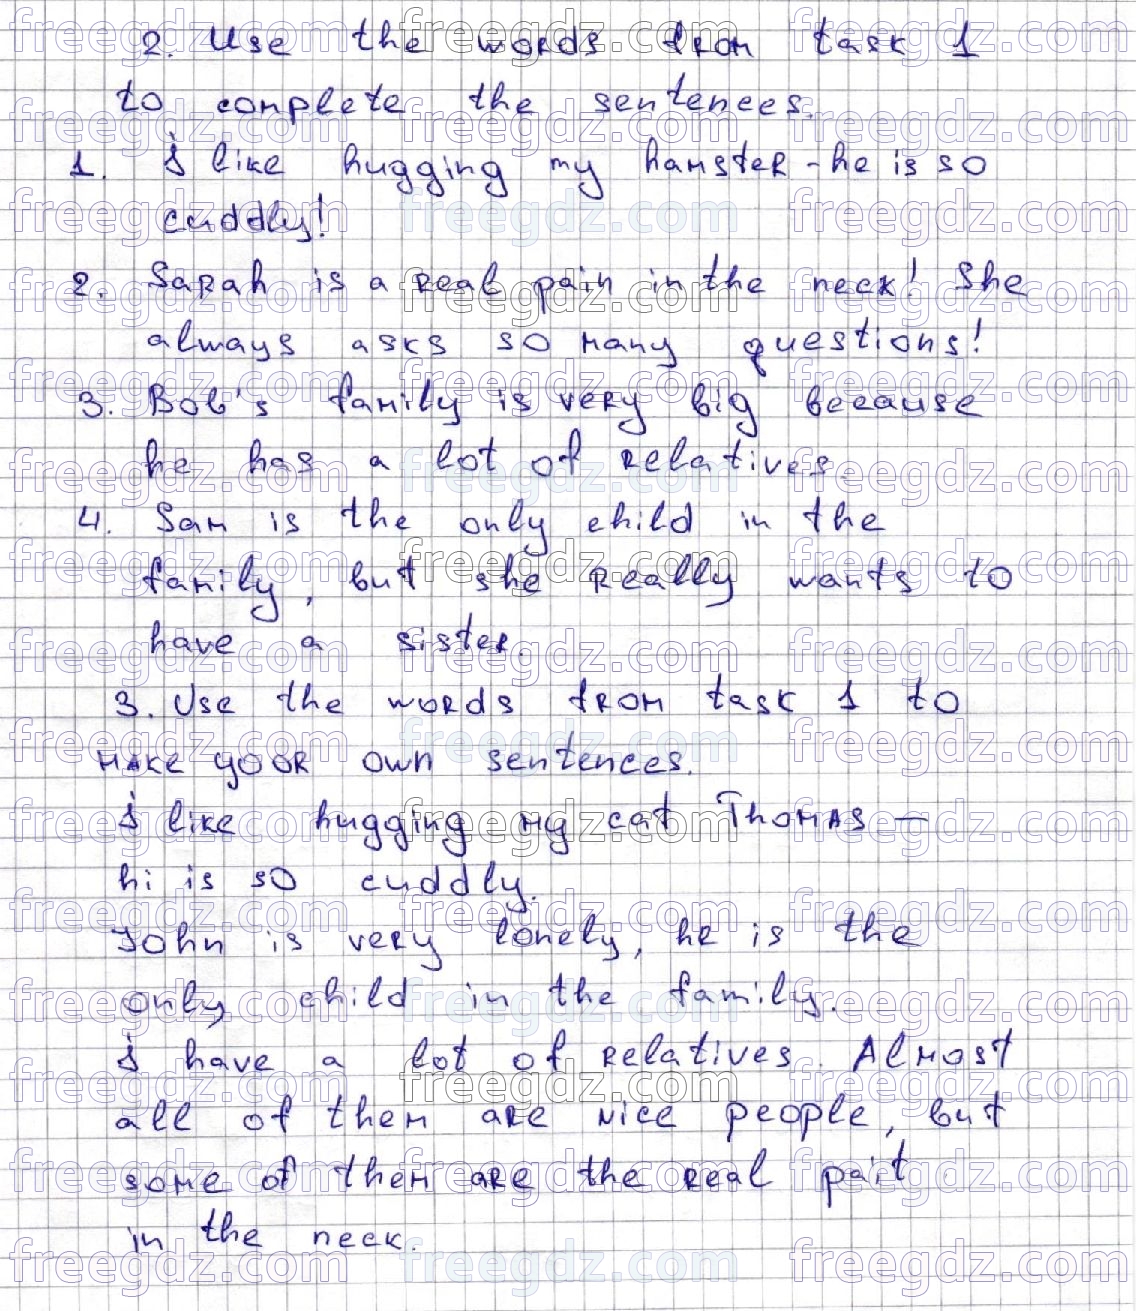 2. Use the words from task 1
to complete the sentences.
1. I like hugging my hamster - he is so
cuddly!
2. Sarah is a real pain in the neck! She
always asks so many questions!
3. Bob's family is very big because
he has a lot of relatives.
4. Sam is the only child in the
family, but she really wants to
have a sister.
3. Use the words from task 1 to
make your own sentences.
I like hugging my cat Thomas —
hi is so cuddly.
John is very lonely, he is the
only child in the family.
I have a lot of relatives. Almost
all of them are nice people, but
some of them are the real pait
in the neck.